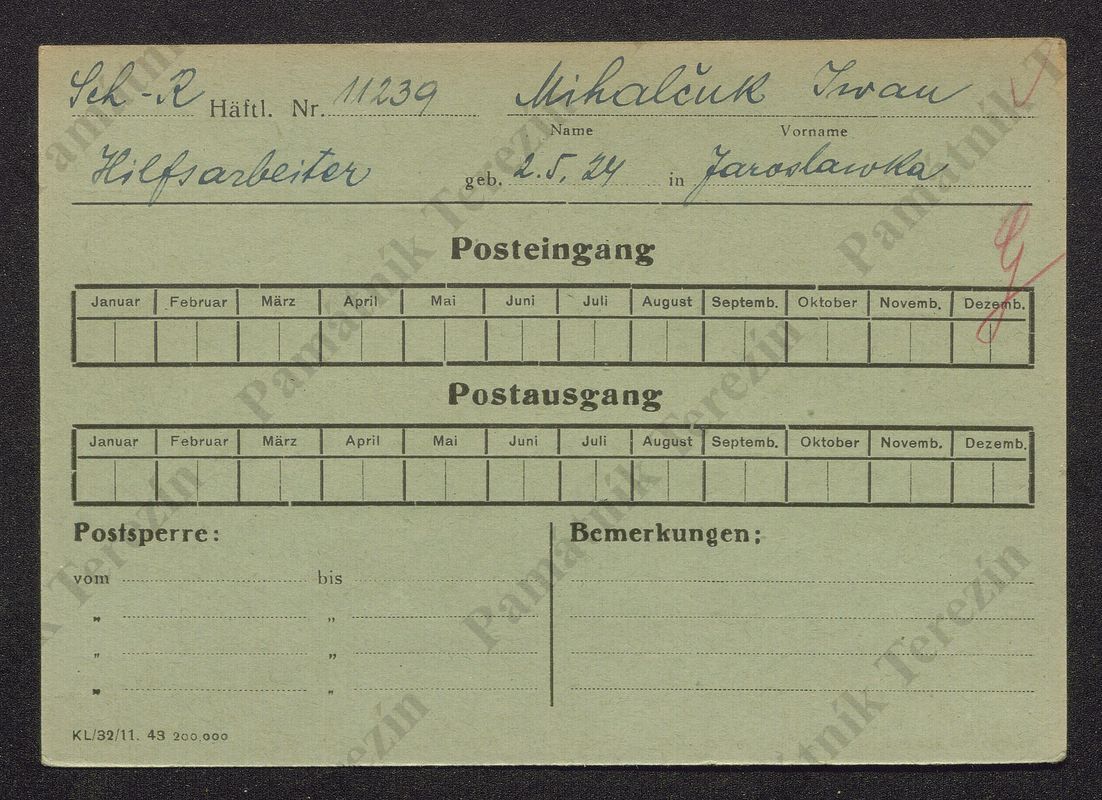 Sch-R Häftl. Nr. 11239 Mihalčuk Iwan
Name Vorname
Hilfsarbeiter geb. 2.5.24 in Jaroslawka
Posteingang
Januar Februar März April Mai Juni Juli August Septemb. Oktober Novemb. Dezemb.
Postausgang
Januar Februar März April Mai Juni Juli August Septemb. Oktober Novemb. Dezemb.
Postsperre: Bemerkungen:
vom bis
" "
" "
" "
KL/32/11. 43 200.000
Památník Terezín